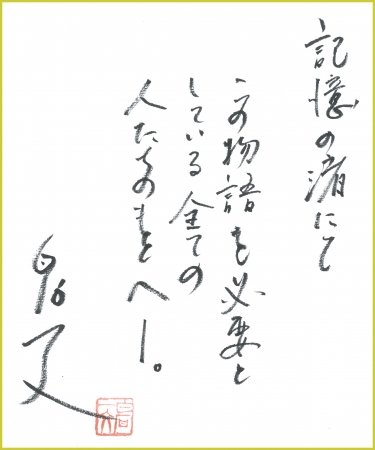 記憶の渚にて
この物語を必要と
している全ての
人たちのもとへ―。